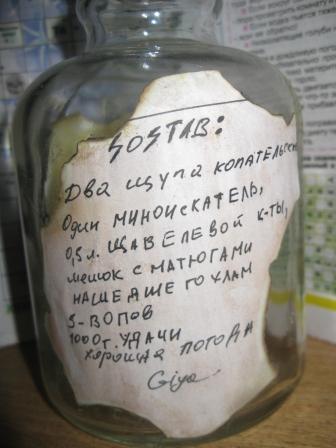 SOSTAB:
Два щупа копательских
Один миноискатель,
0,5 л. щавелевой к-ты,
мешок с матюгами
нашедшего хлам
5-вопов
1000г. удачи
хороща погода
Giya